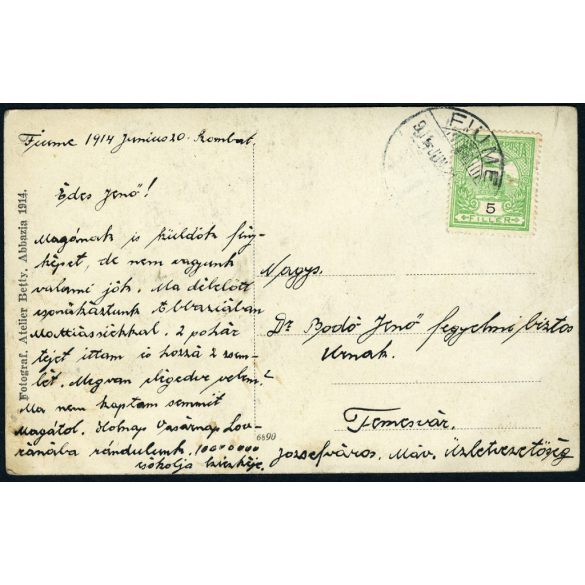 Fiume 1914 Junius 20. Szombat.
Édes Jenő!
Magának is küldök fény-
képet, de nem vagyunk
valami jók. Ma délelőtt
uzsonáztunk Abbaziában
Mattiássickkal. 2 pohár
tejet ittam is hozzá 2 zsem-
lét. Megvan elégedve velem?
Ma nem kaptam semmit
Magától. Holnap Vasárnap Lov-
ránába rándulunk. 10000000
csókolja Erzsikéje.
Fotograf. Atelier Betty, Abbazia 1914.
6690
FIUME
POSTA
5
FILLER
Nagys.
Dr Bodó Jenő fegyelmi biztos
Urnak.
Temesvár.
Józsefváros. Máv. Üzletvezetőség